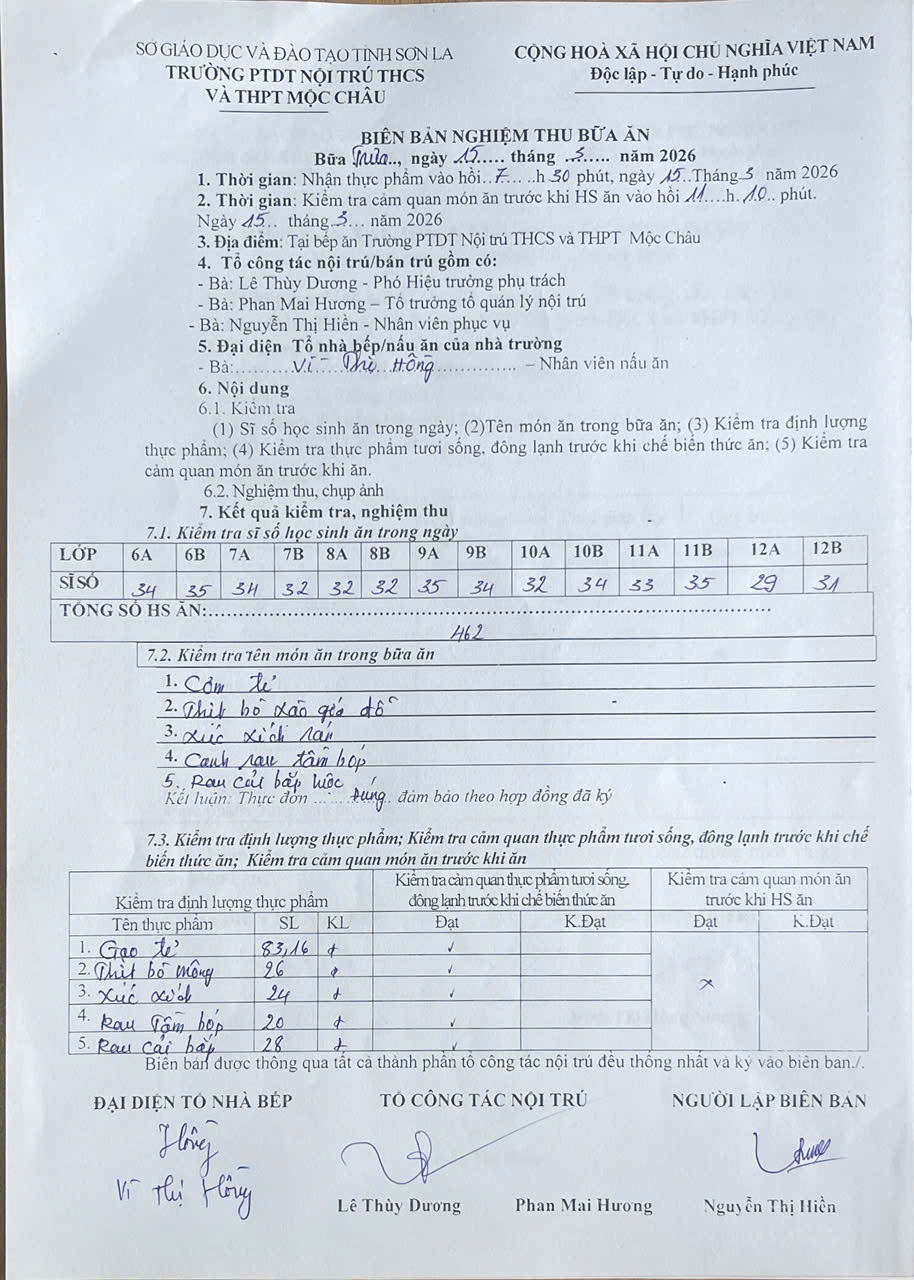 SỞ GIÁO DỤC VÀ ĐÀO TẠO TỈNH SƠN LA
TRƯỜNG PTDT NỘI TRÚ THCS
VÀ THPT MỘC CHÂU
CỘNG HOÀ XÃ HỘI CHỦ NGHĨA VIỆT NAM
Độc lập - Tự do - Hạnh phúc
BIÊN BẢN NGHIỆM THU BỮA ĂN
Bữa Trưa.., ngày 15..... tháng .3..... năm 2026
1. Thời gian: Nhận thực phẩm vào hồi..7.....h 30 phút, ngày 15..Tháng 3 năm 2026
2. Thời gian: Kiểm tra cảm quan món ăn trước khi HS ăn vào hồi 11....h.10.. phút.
Ngày 15... tháng.3... năm 2026
3. Địa điểm: Tại bếp ăn Trường PTDT Nội trú THCS và THPT Mộc Châu
4. Tổ công tác nội trú/bán trú gồm có:
- Bà: Lê Thùy Dương - Phó Hiệu trưởng phụ trách
- Bà: Phan Mai Hương – Tổ trưởng tổ quản lý nội trú
- Bà: Nguyễn Thị Hiền - Nhân viên phục vụ
5. Đại diện Tổ nhà bếp/nấu ăn của nhà trường
- Bà:.........Vì Thị Hồng............... – Nhân viên nấu ăn
6. Nội dung
6.1. Kiểm tra
(1) Sĩ số học sinh ăn trong ngày; (2)Tên món ăn trong bữa ăn; (3) Kiểm tra định lượng
thực phẩm; (4) Kiểm tra thực phẩm tươi sống, đông lạnh trước khi chế biến thức ăn; (5) Kiểm tra
cảm quan món ăn trước khi ăn.
6.2. Nghiệm thu, chụp ảnh
7. Kết quả kiểm tra, nghiệm thu
7.1. Kiểm tra sĩ số học sinh ăn trong ngày
LỚP 6A 6B 7A 7B 8A 8B 9A 9B 10A 10B 11A 11B 12A 12B
SĨ SỐ 34 35 34 32 32 32 35 34 32 34 33 35 29 31
TỔNG SỐ HS ĂN:..........
462
7.2. Kiểm tra tên món ăn trong bữa ăn
1. Cơm tẻ
2. Thịt bò xào giá đỗ
3. Xúc xích rán
4. Canh rau tầm bóp
5. Rau cải bắp luộc
Kết luận: Thực đơn ......... đúng.. đảm bảo theo hợp đồng đã ký
7.3. Kiểm tra định lượng thực phẩm; Kiểm tra cảm quan thực phẩm tươi sống, đông lạnh trước khi chế
biến thức ăn; Kiểm tra cảm quan món ăn trước khi ăn
Kiểm tra định lượng thực phẩm
Kiểm tra cảm quan thực phẩm tươi sống,
đông lạnh trước khi chế biến thức ăn
Kiểm tra cảm quan món ăn
trước khi HS ăn
Tên thực phẩm SL KL Đạt K.Đạt Đạt K.Đạt
1. Gạo tẻ 83,16 + ✓
2. Thịt bò mông 26 + ✓
3. Xúc xích 24 + ✓ x
4. Rau Tầm bóp 20 + ✓
5. Rau cải bắp 28 + ✓
Biên bản được thông qua tất cả thành phần tổ công tác nội trú đều thống nhất và ký vào biên bản./.
ĐẠI DIỆN TỔ NHÀ BẾP TỔ CÔNG TÁC NỘI TRÚ NGƯỜI LẬP BIÊN BẢN
Hồng
Vì Thị Hồng
Lê Thùy Dương Phan Mai Hương Nguyễn Thị Hiền